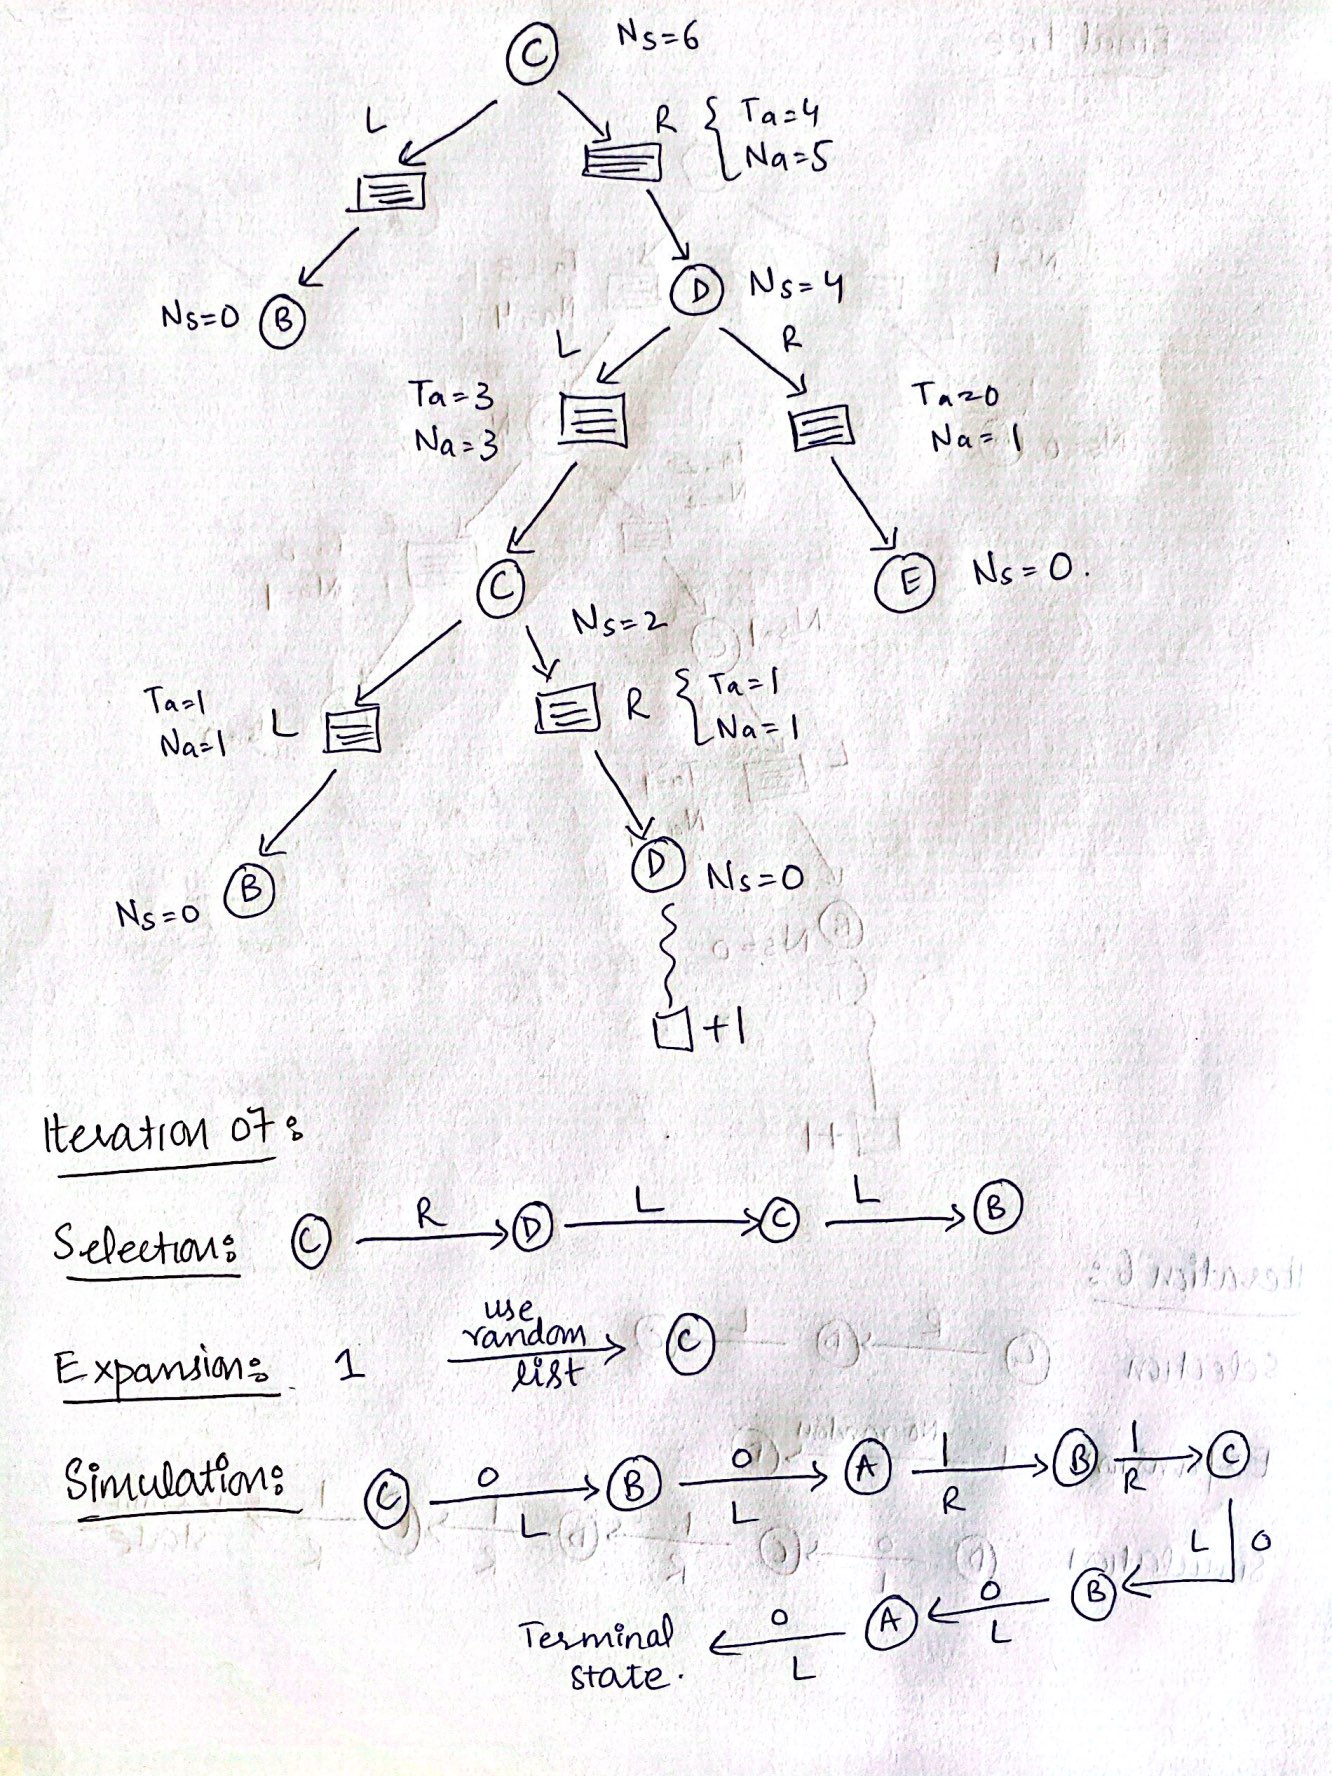 C Ns=6
L
R { Ta=4
Na=5
D Ns=4
Ns=0 B
L R
Ta=3
Na=3
Ta=0
Na=1
C
E Ns=0.
Ns=2
Ta=1
Na=1 L
R { Ta=1
Na=1
D Ns=0
Ns=0 B
+1
Iteration 07:
Selection: C R D L C L B
Expansion: 1 use random list C
Simulation: C 0 L B 0 L A 1 R B 1 R C
L 0
B 0 L A 0 L Terminal
state.